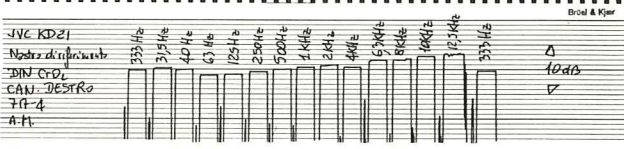 Brüel & Kjær
JVC KD21
Nastro di riferimento
DIN CrO2
CAN. DESTRO
7-7-4
A.M.
333 Hz
31,5 Hz
40 Hz
63 Hz
125 Hz
250 Hz
500 Hz
1 KHz
2 KHz
4 KHz
6,3 KHz
8 KHz
10 KHz
12,5 KHz
333 Hz
10 dB